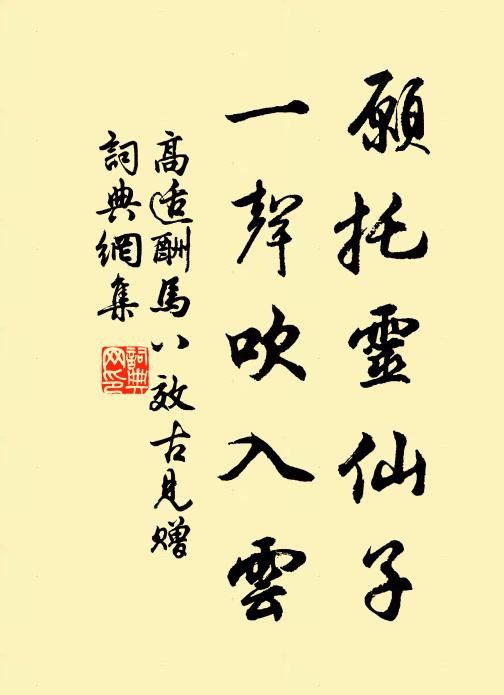 願托靈仙子
一聲吹入雲
高适酬馬八效古見贈
詞典網集
詞典
网印